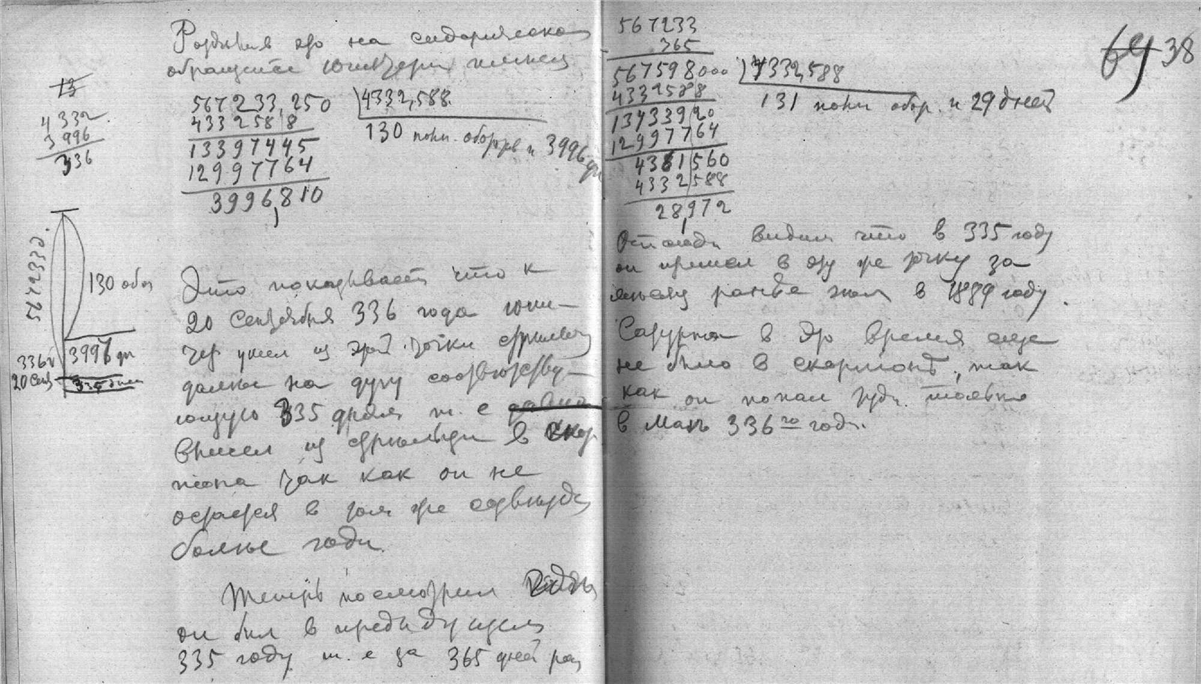 Разделив это на сидерическое
обращение Юпитера имеем
13
4332
3996
336
567233,250 | 4332,588
4332588
13397445
12997764
3996810
130 полн. обор. и 3996 дн
130 обор
3996 дн
336 г
20 Сент
335 дней
Это показывает что к
20 Сентября 336 года Юпи-
тер ушел из этой точки стрельца
далее на дугу соответству-
ющую 335 дням т. е
вышел из стрельца в скор
пиона так как он не
остается в том же созвездии
больше года.
Теперь посмотрим
он был в предыдущем
335 году т. е за 365 дней ра
567233
365
567598000 | 4332,588
4332588
13433920
12997764
4361560
4332588
28972
131 полн обор. и 29 дней
64 38
Отсюда видим что в 335 году
он пришел в эту же точку за
месяц раньше чем в 1899 году.
Сатурна в это время еще
не было в скорпионе, так
как он попал туда только
в Мае 336го года.